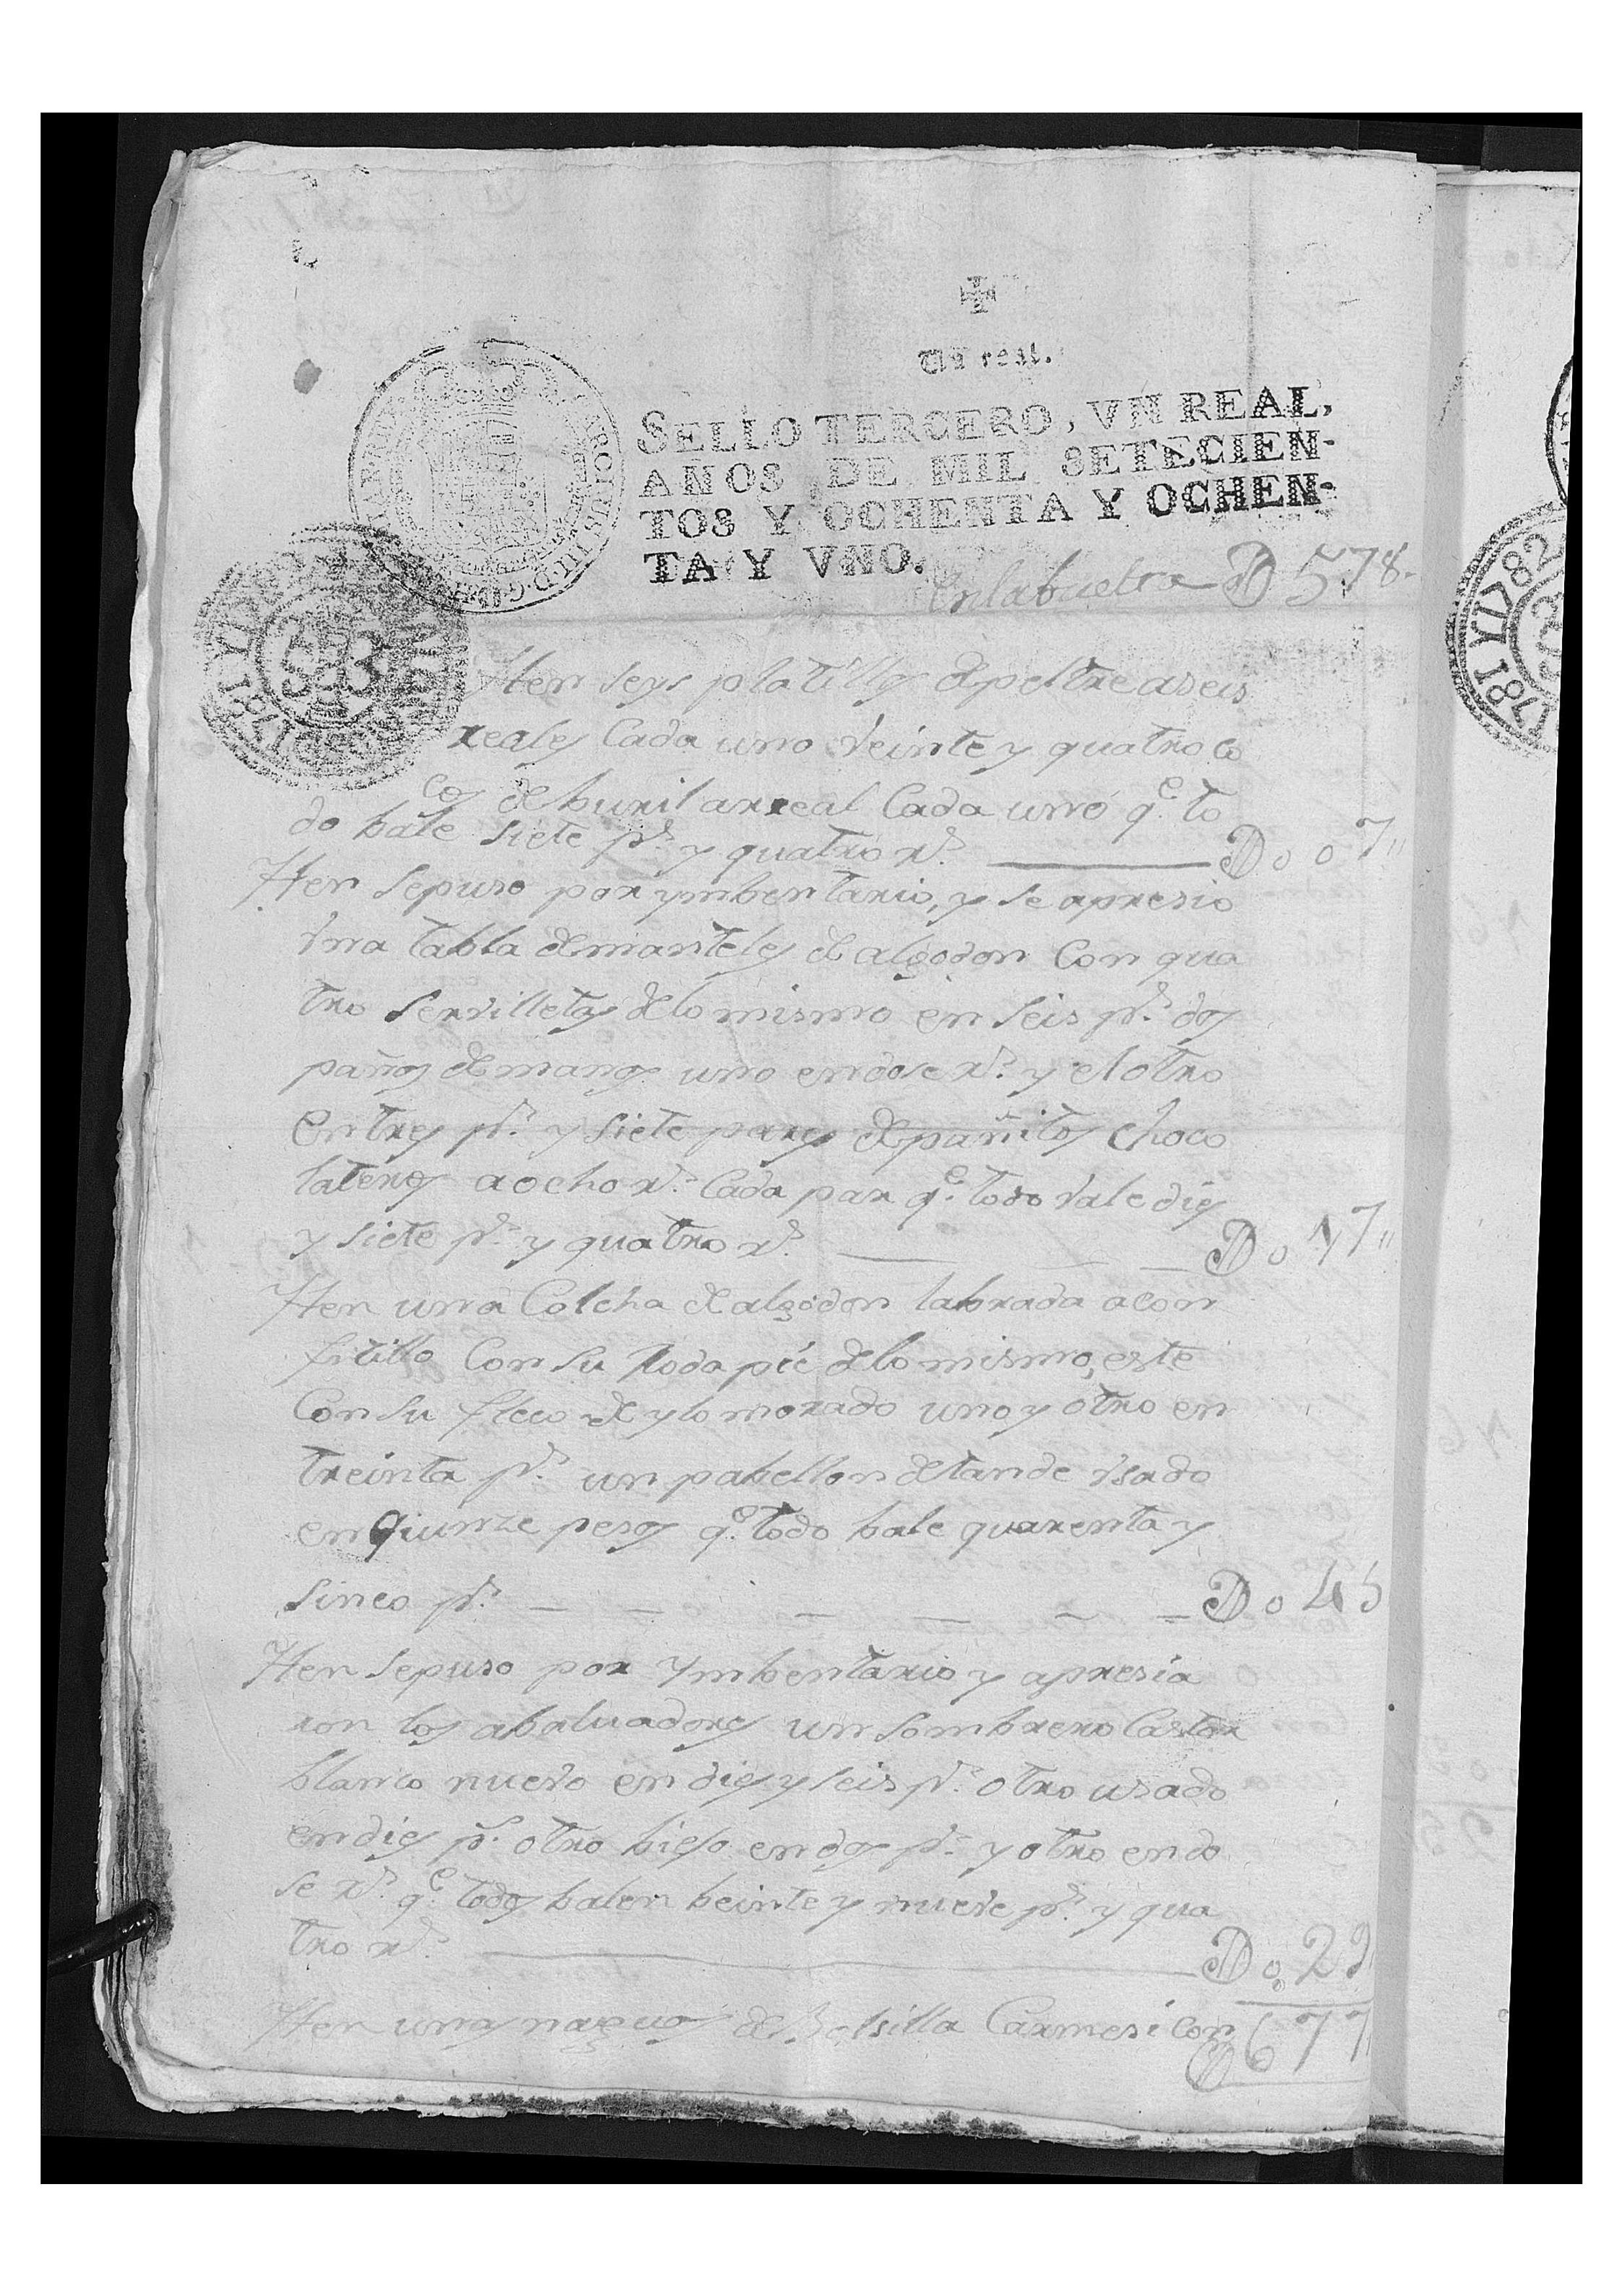 Un real.
SELLO TERCERO, VN REAL,
AÑOS DE MIL SETECIEN-
TOS Y OCHENTA Y OCHEN-
TA Y VNO.
En la buelta D 578
Yten seys platillos de peltre a seis
reales Cada uno veinte y quatro co
cos de buril a rreal Cada uno q.e to
do bale siete p.s y quatro r.s D 0 0 7
Yten se puso por ymbentario, y se apresio
vna tabla de manteles de algodon Con qua
tro servilletas de lo mismo en seis p.s dos
paños de manos uno en dose r.s y el otro
en tres p.s y siete pares de pañitos choco
lateros a ocho r.s Cada par q.e todo vale dies
y siete p.s y quatro r.s D 0 17
Yten una Colcha de algodon labrada a con
fitillo Con su Rodapie de lo mismo, este
Con su fleco de ylo morado uno y otro en
treinta p.s un pabellon de tande vsado
en Quinze pesos q.e todo bale quarenta y
sinco p.s D 0 45
Yten se puso por Ymbentario y apresia
ron los abaluadores un sombrero Castor
blanco nuevo en dies y seis p.s otro usado
en dies p.s otro biejo en dos p.s y otro en do
se r.s q.e todos balen beinte y nueve p.s y qua
tro r.s D 0 29
Yten unas naguas de Carmesi con
D 677
1781 Y 1782